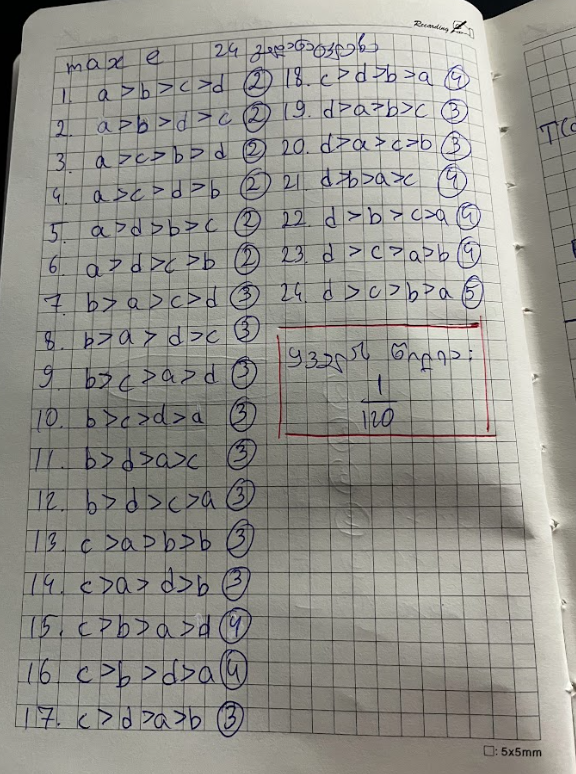 Recording
max e 24
1. a>b>c>d ②
2. a>b>d>c ②
3. a>c>b>d ②
4. a>c>d>b ②
5. a>d>b>c ②
6. a>d>c>b ②
7. b>a>c>d ③
8. b>a>d>c ③
9. b>c>a>d ③
10. b>c>d>a ③
11. b>d>a>c ③
12. b>d>c>a ③
13. c>a>b>b ③
14. c>a>d>b ③
15. c>b>a>d ④
16. c>b>d>a ④
17. c>d>a>b ③
18. c>d>b>a ④
19. d>a>b>c ③
20. d>a>c>b ③
21. d>b>a>c ④
22. d>b>c>a ④
23. d>c>a>b ④
24. d>c>b>a ⑤
ყველას წილია:
1
120
T(
□: 5x5mm